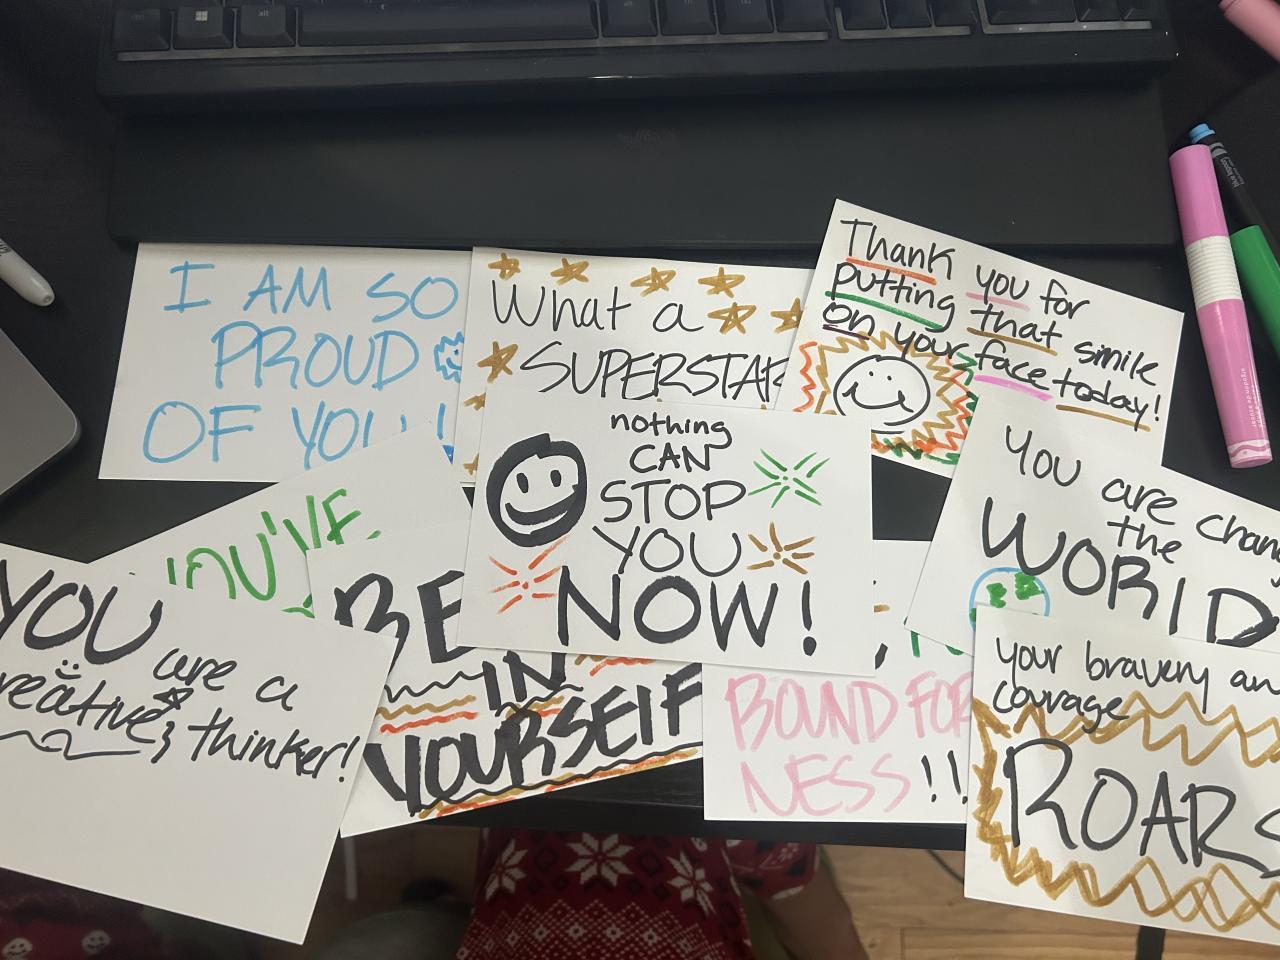 I AM SO
PROUD
OF YOU!
What a
SUPERSTAR
Thank you for
putting that smile
on your face today!
nothing
CAN
STOP
YOU
NOW!
YOU are
the
WORLD
YOU'VE
BE
IN
YOURSELF
YOU are a
creative thinker!
BOUND FOR
NESS!!
your bravery
courage
ROARS
alt